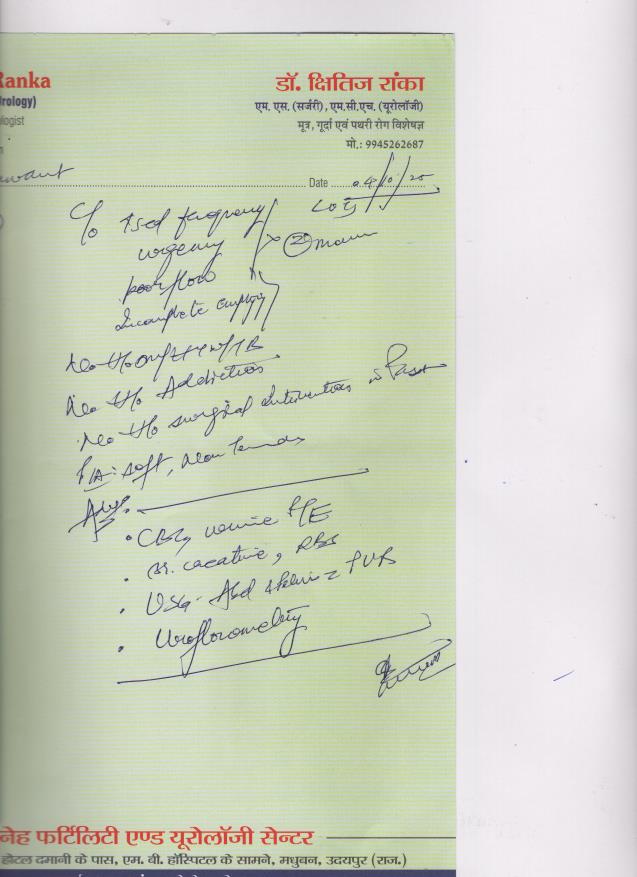 Ranka
डॉ. क्षितिज रांका
rology)
एम. एस. (सर्जरी), एम.सी.एच. (यूरोलॉजी)
ologist
मूत्र, गूर्दा एवं पथरी रोग विशेषज्ञ
मो.: 9945262687
Date 04/10/25
C/o ↑sed frequency
urgency
poor flow
Incomplete emptying
No H/o DM/HTN/TB
No H/o Addiction
No H/o surgical intervention in Past
P/A: soft, Non Tender
Adv.
• CBC, urine R/E
• Sr. creatinine, RBS
• USG - Abd & Pelvis c PVR
• Uroflowmetry
नेह फर्टिलिटी एण्ड यूरोलॉजी सेन्टर
होटल दमानी के पास, एम. बी. हॉस्पिटल के सामने, मधुबन, उदयपुर (राज.)